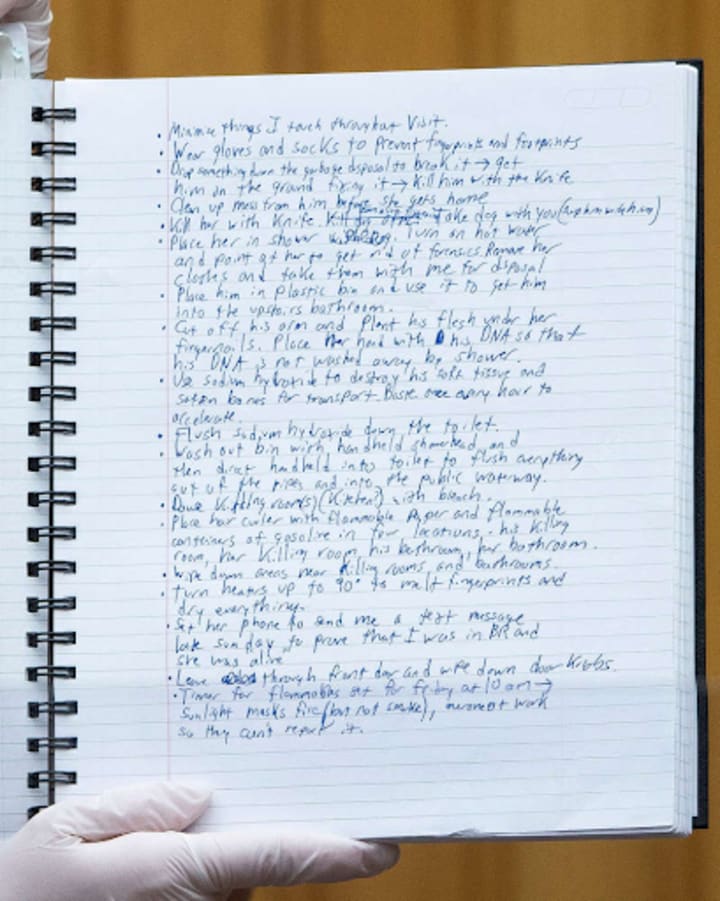 • Minimize things I touch throughout visit.
• Wear gloves and socks to prevent fingerprints and footprints
• Drop something down the garbage disposal to break it → get
him on the ground fixing it → kill him with the knife
• Clean up mess from him before she gets home
• Kill her with knife. Take dog with you
• Place her in shower. Turn on hot water
and point at her to get rid of forensics. Remove her
clothes and take them with me for disposal
• Place him in plastic bin and use it to get him
into the upstairs bathroom.
• Cut off his arm and plant his flesh under her
fingernails. Place her hand with his DNA so that
his DNA is not washed away by shower.
• Use sodium hydroxide to destroy his soft tissue and
soften bones for transport. Baste once every hour to
accelerate.
• Flush sodium hydroxide down the toilet.
• Wash out bin with handheld showerhead and
then direct handheld into toilet to flush everything
out of the pipes and into the public waterway.
• Douse killing room(s) (kitchen?) with bleach.
• Place hair curler with flammable paper and flammable
containers of gasoline in four locations - his killing
room, her killing room, his bathroom, her bathroom.
• Wipe down areas near killing rooms and bathrooms.
• Turn heaters up to 90° to melt fingerprints and
dry everything.
• Set her phone to send me a text message
late sunday to prove that I was in BR and
she was alive
• Leave through front door and wipe down door knobs.
• Timer for flammables set for friday at 10 am →
sunlight masks fire (but not smoke), at work
so they can't report it.